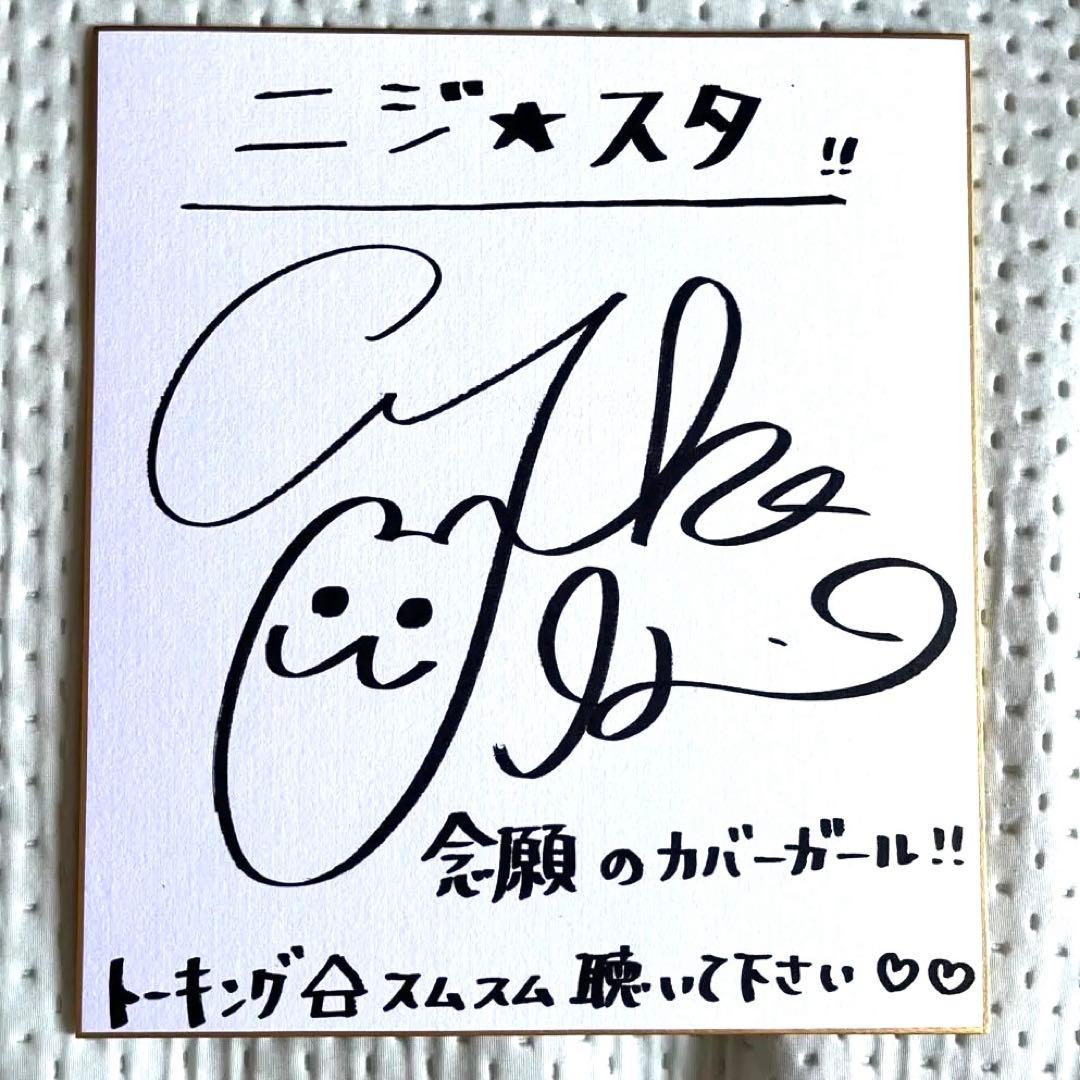 ニジ★スタ!!
念願のカバーガール!!
トーキング合スムスム聴いて下さい♡♡